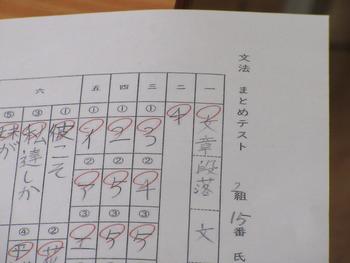 文法 まとめテスト
2組 15番 氏
一
文章
段落
文
二
4
三
① 3
② 4
③ 5
四
① 2
② 5
③ 5
五
① イ
② ア
③ エ
六
① 彼こそ
②
③ 私達しか
④
⑤ 妹が